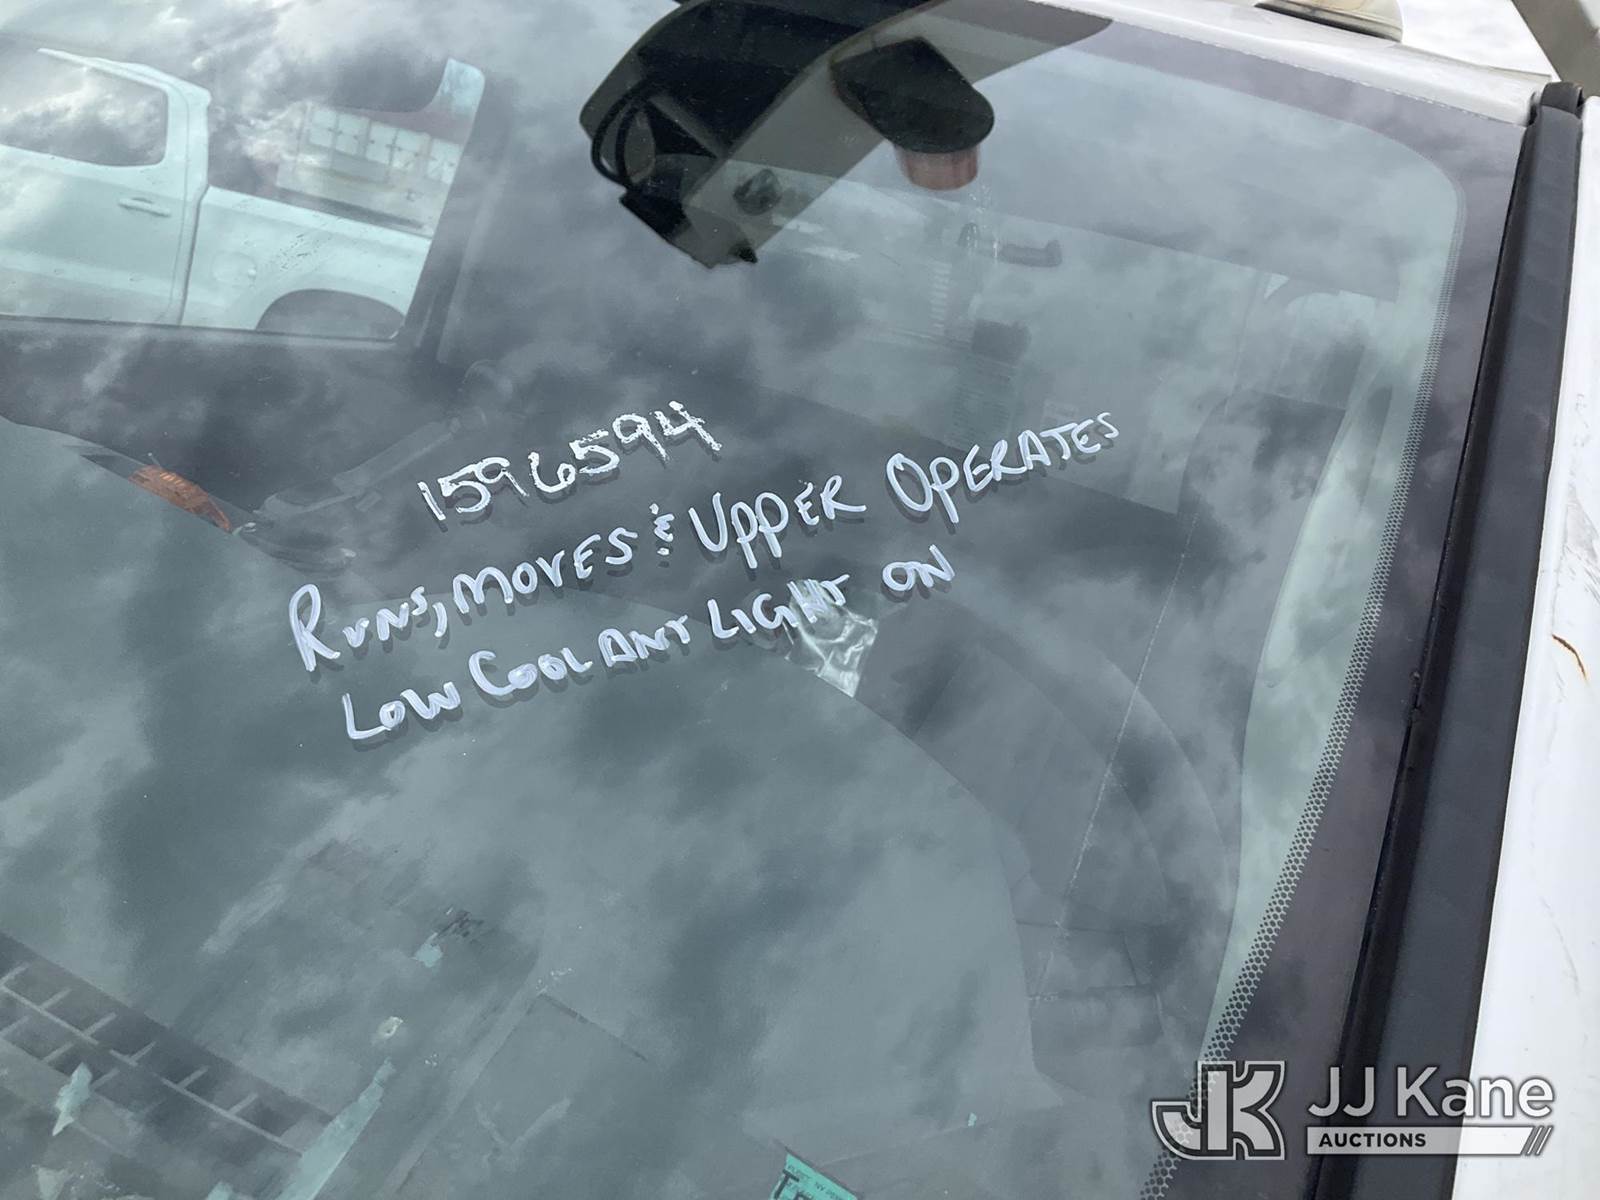 1596594
RUNS, MOVES & UPPER OPERATES
LOW COOLANT LIGHT ON
JJ Kane
AUCTIONS